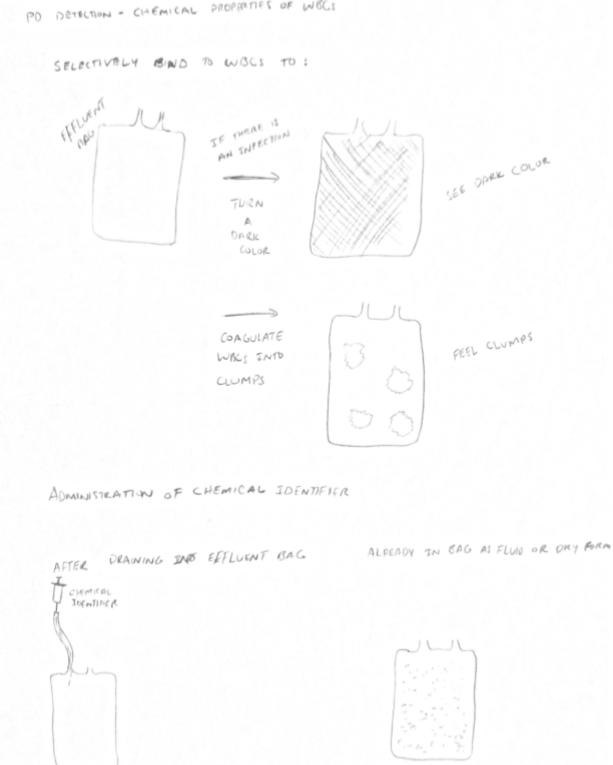 PD DETECTION - CHEMICAL PROPERTIES OF WBCS
SELECTIVELY BIND TO WBCS TO :
EFFLUENT
BAG
IF THERE IS
AN INFECTION
TURN
A
DARK
COLOR
SEE DARK COLOR
COAGULATE
WBCS INTO
CLUMPS
FEEL CLUMPS
ADMINISTRATION OF CHEMICAL IDENTIFIER
AFTER DRAINING INTO EFFLUENT BAG
CHEMICAL
IDENTIFIER
ALREADY IN BAG AS FLUID OR DRY FORM